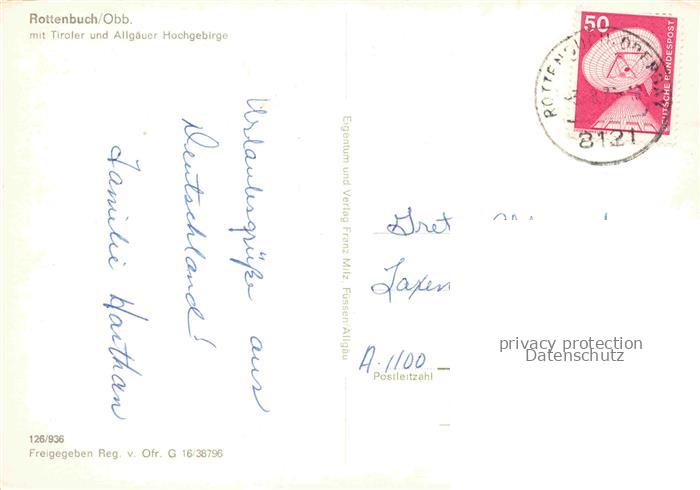 Rottenbuch/Obb.
mit Tiroler und Allgäuer Hochgebirge
Urlaubsgrüße aus
Deutschland!
Familie Harthan
126/936
Freigegeben Reg. v. Ofr. G 16/38796
Eigentum und Verlag Franz Milz, Füssen-Allgäu
50
DEUTSCHE BUNDESPOST
8121
Laxen
A-1100
Postleitzahl
privacy protection
Datenschutz